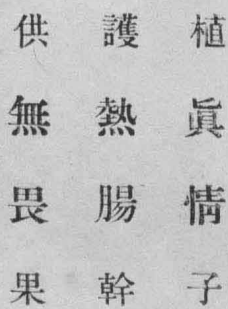 植眞情子
護熱腸幹
供無畏果